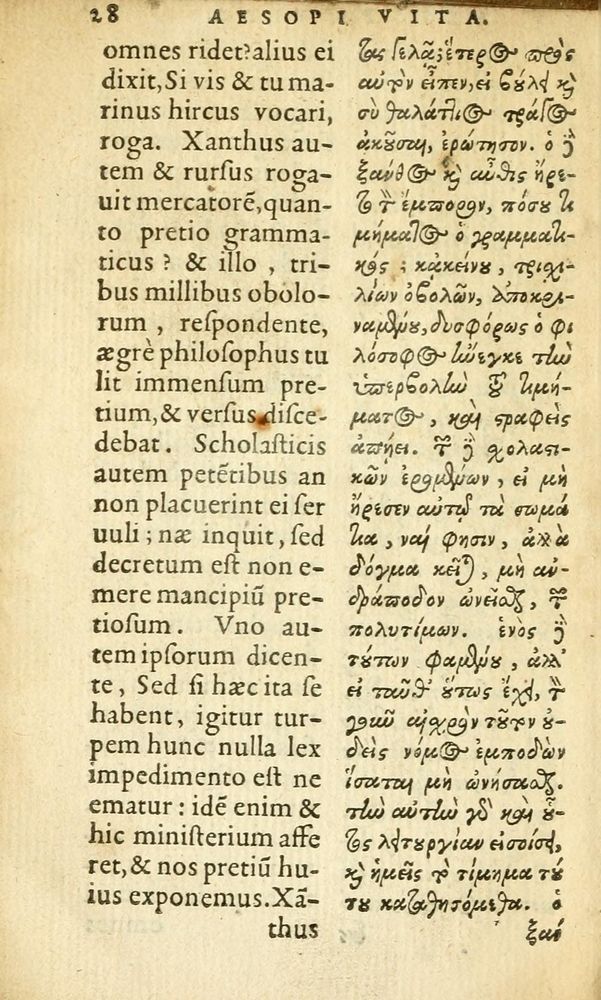 28 AESOPI VITA.
omnes ridet? alius ei
dixit, Si vis & tu ma-
rinus hircus vocari,
roga. Xanthus au-
tem & rurſus roga-
uit mercatorē, quan-
to pretio gramma-
ticus? & illo, tri-
bus millibus obolo-
rum, reſpondente,
ægrè philoſophus tu
lit immenſum pre-
tium, & verſus diſce-
debat. Scholaſticis
autem petētibus an
non placuerint ei ſer
uuli; næ inquit, ſed
decretum eſt non e-
mere mancipiū pre-
tioſum. Vno au-
tem ipſorum dicen-
te, Sed ſi hæc ita ſe
habent, igitur tur-
pem hunc nulla lex
impedimento eſt ne
ematur: idē enim &
hic miniſterium affe
ret, & nos pretiū hu-
ius exponemus. Xā-
thus
τος γελᾷ; ἕτερος πρὸς
αὐτὸν εἶπεν, εἰ βούλει καὶ
σὺ θαλάττιος τράγος
ἀκοῦσαι, ἐρώτησον. ὁ δὲ
ξάνθος καὶ αὖθις ἤρε-
το τὸν ἔμπορον, πόσου τι
μήματος ὁ γραμματι-
κός; κἀκείνου, τρισχι-
λίων ὀβολῶν, ἀποκρι-
ναμένου, δυσφόρως ὁ φι
λόσοφος ἤνεγκε τὴν
ὑπερβολὴν τοῦ τιμή-
ματος, καὶ στραφεὶς
ἀπῄει. τῶν δὲ σχολαστι-
κῶν ἐρομένων, εἰ μὴ
ἤρεσεν αὐτῷ τὰ σωμά
τια, ναί φησιν, ἀλλὰ
δόγμα κεῖται, μὴ ἀν-
δράποδον ὠνεῖσθαι, τῶν
πολυτίμων. ἑνὸς δὲ
τούτων φαμένου, ἀλλ'
εἰ ταῦθ' οὕτως ἔχει, τὸν
γοῦν αἰσχρὸν τοῦτον οὐ-
δεὶς νόμος ἐμποδὼν
ἵσταται μὴ ὠνήσασθαι.
τὴν αὐτὴν γὰρ καὶ οὗ-
τος λειτουργίαν εἰσοίσει,
καὶ ἡμεῖς τὸ τίμημα τού
του καταθησόμεθα. ὁ
ξάν